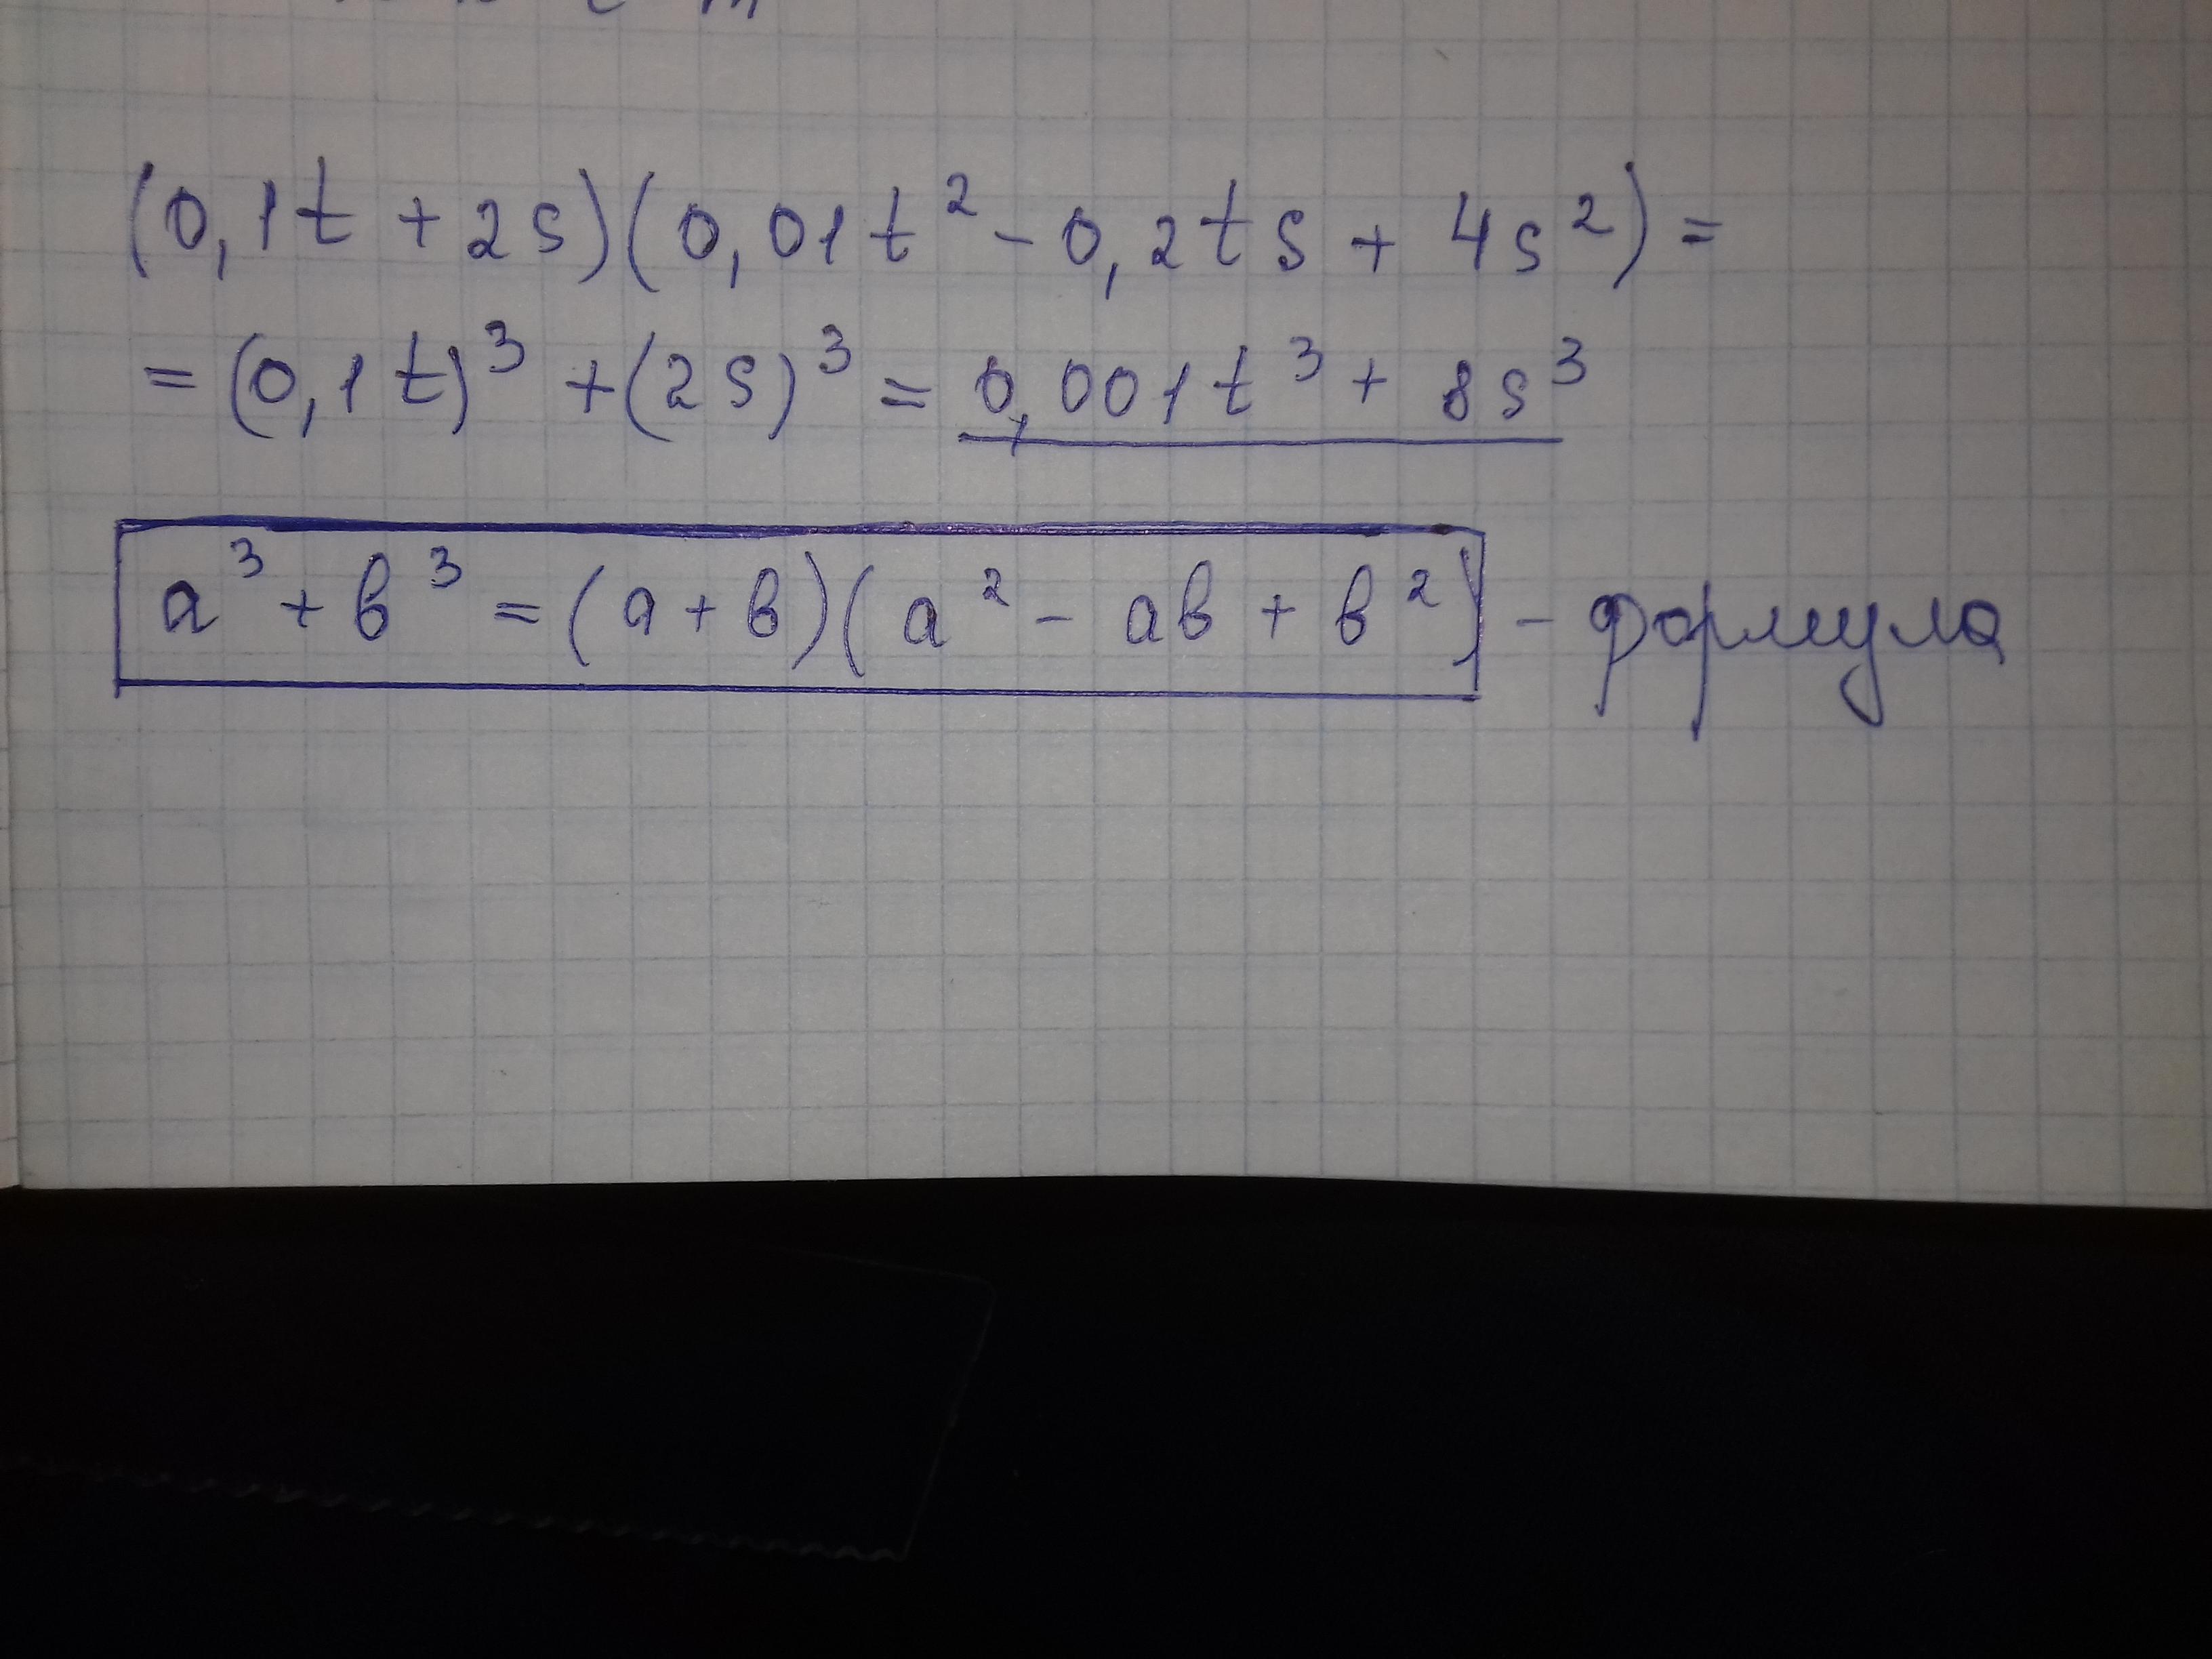 (0,1t + 2s)(0,01t² - 0,2ts + 4s²) =
= (0,1t)³ + (2s)³ = 0,001t³ + 8s³
a³ + в³ = (a + в)(a² - aв + в²) - формула